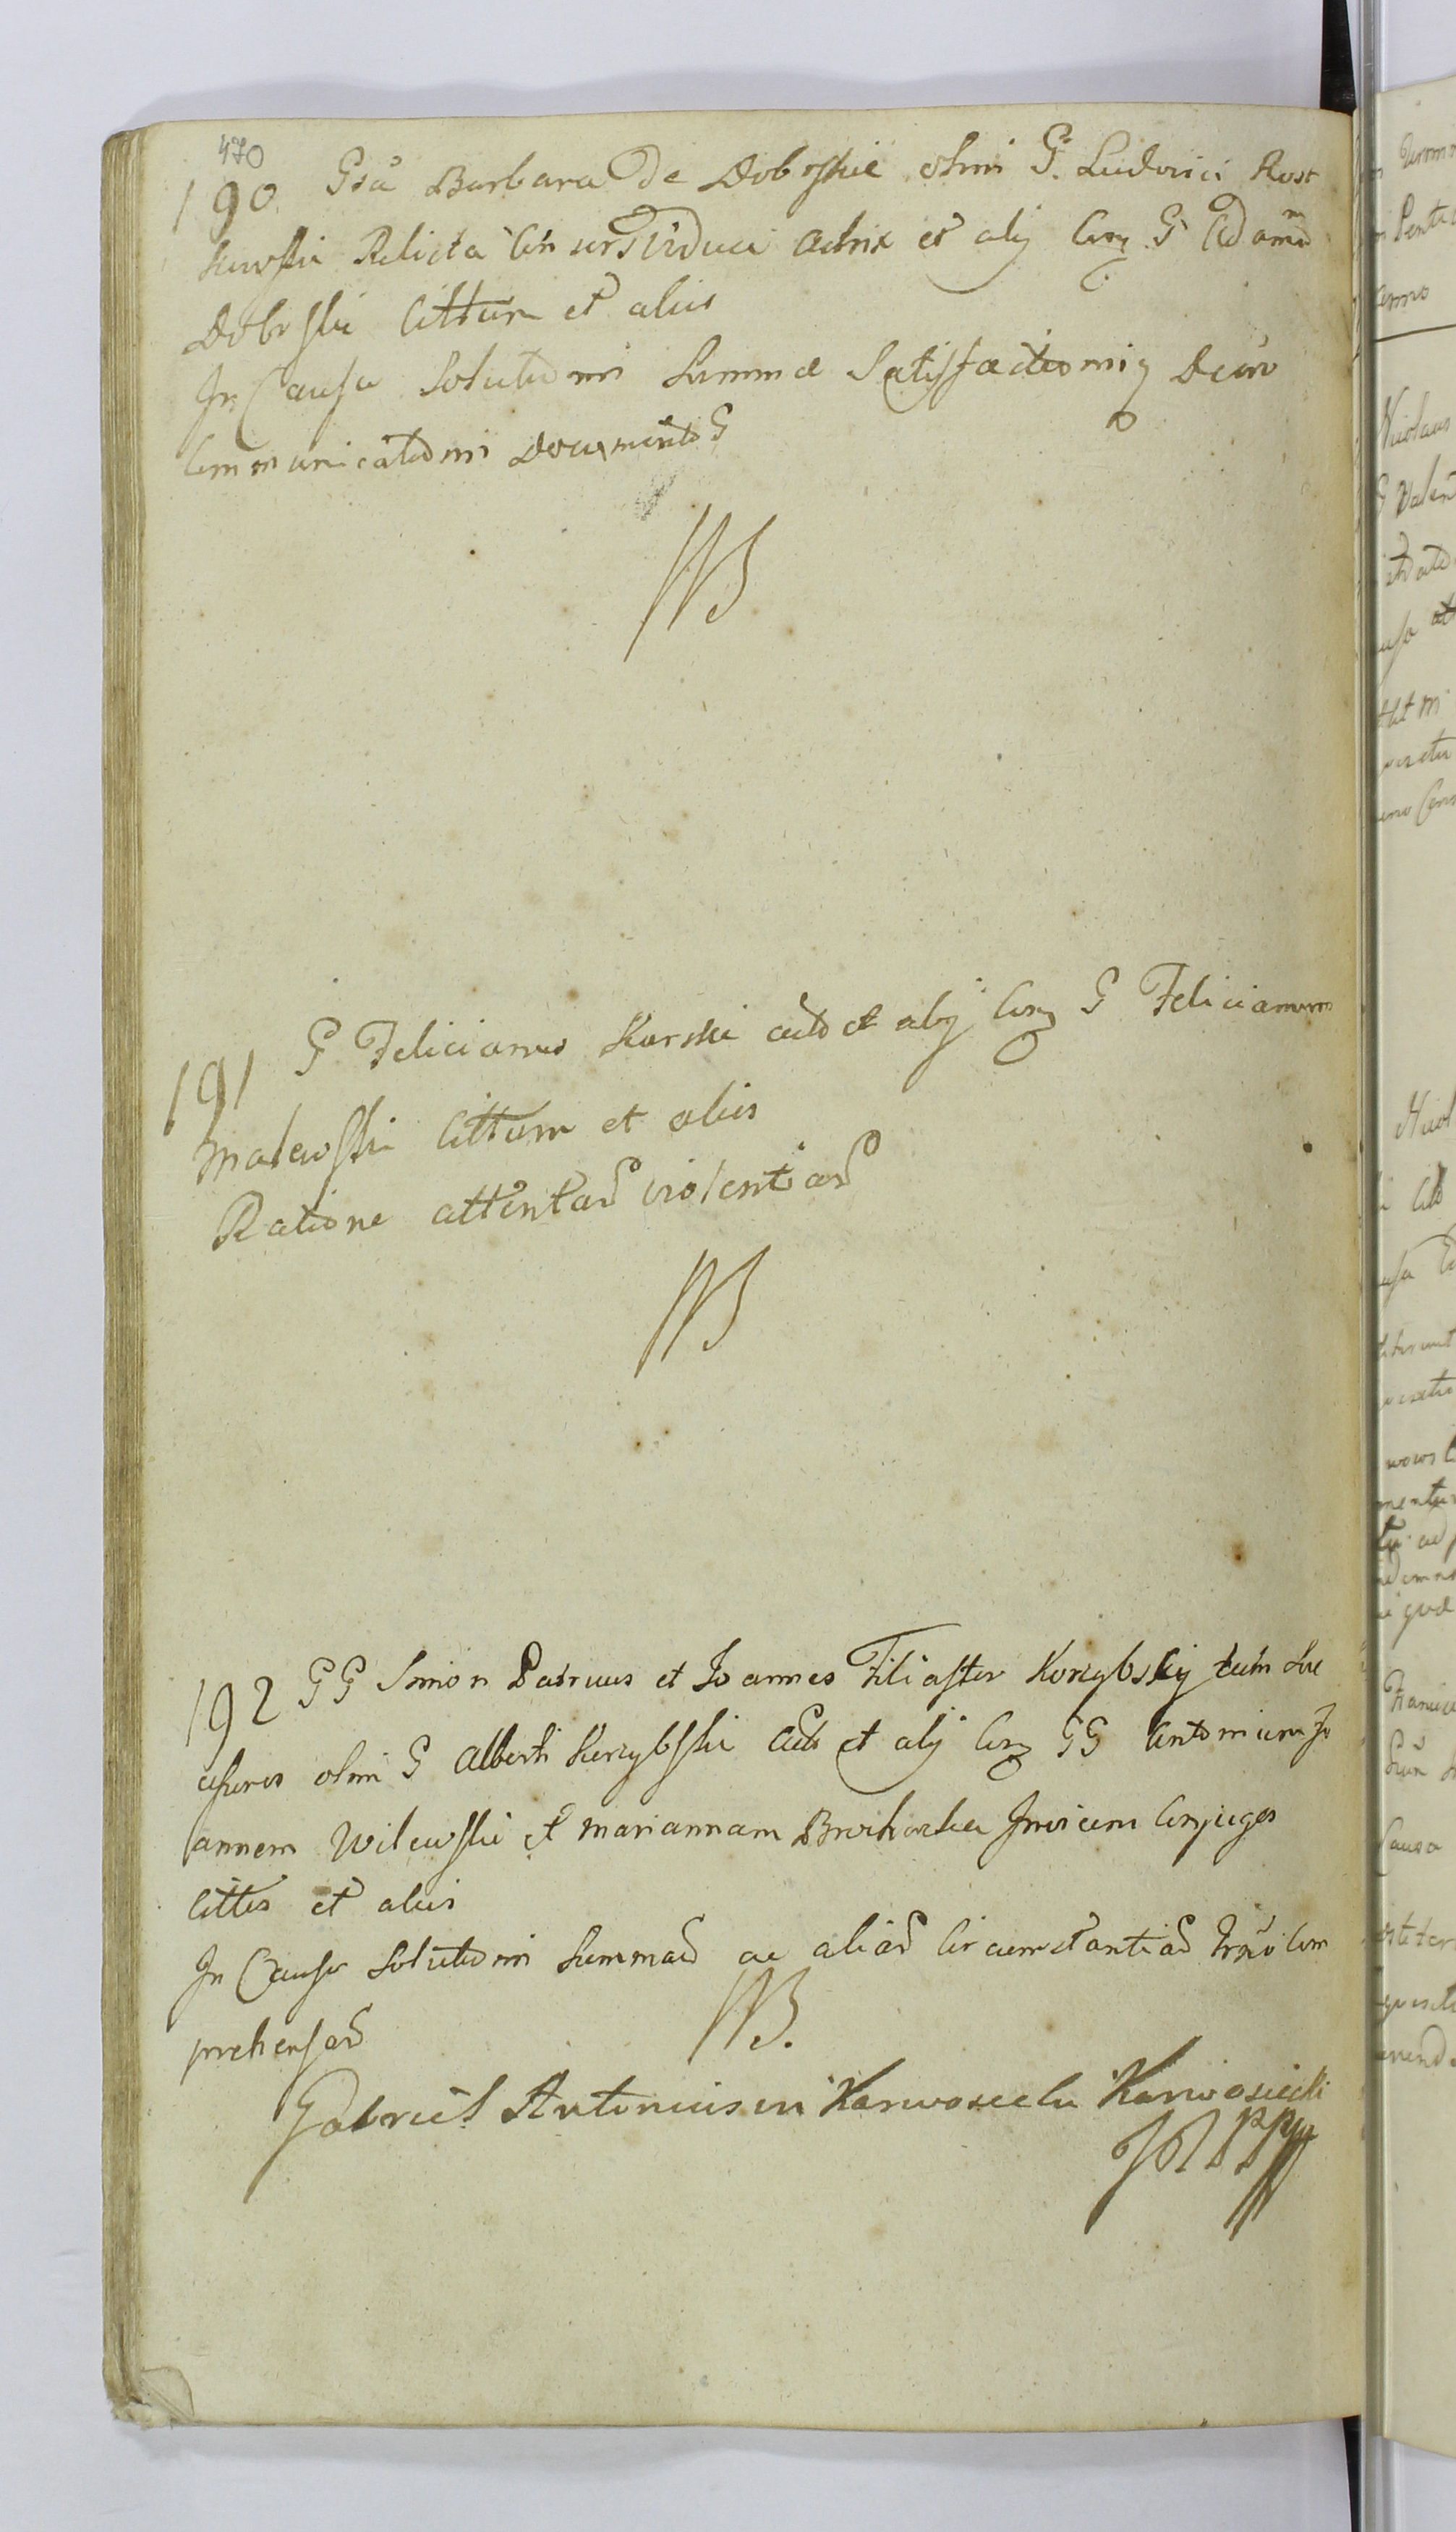 470
190 Gsa Barbara De Dobrskie olim G. Ludovici Rost
kowski Relicta Consors Vidua Actrix et alij Conq G Adamu
Dobrski Cittum et alios
In Causa Solutionis Summæ Satisfactionisq Decro
Communicationis Documentor
WB
191 G Felicianus Karski actor et alij Conq G Felicianum
Malewski Cittum et alios
Ratione attentar violentiar
WB
192 GG Simon Patruus et Joannes Filiaster Korzybskij tum Suc
cessores olim G Alberti Korzybski Act et alij Conq GG Antonium Jo
annem Wilewski et Mariannam Brochocka Invicem Conjuges
Cittos et alios
In Causa Solutionis Summar ac aliar Circumstantiar
prehensar
WB.
Gabriel Antonius in Karwosieki Karwosiecki